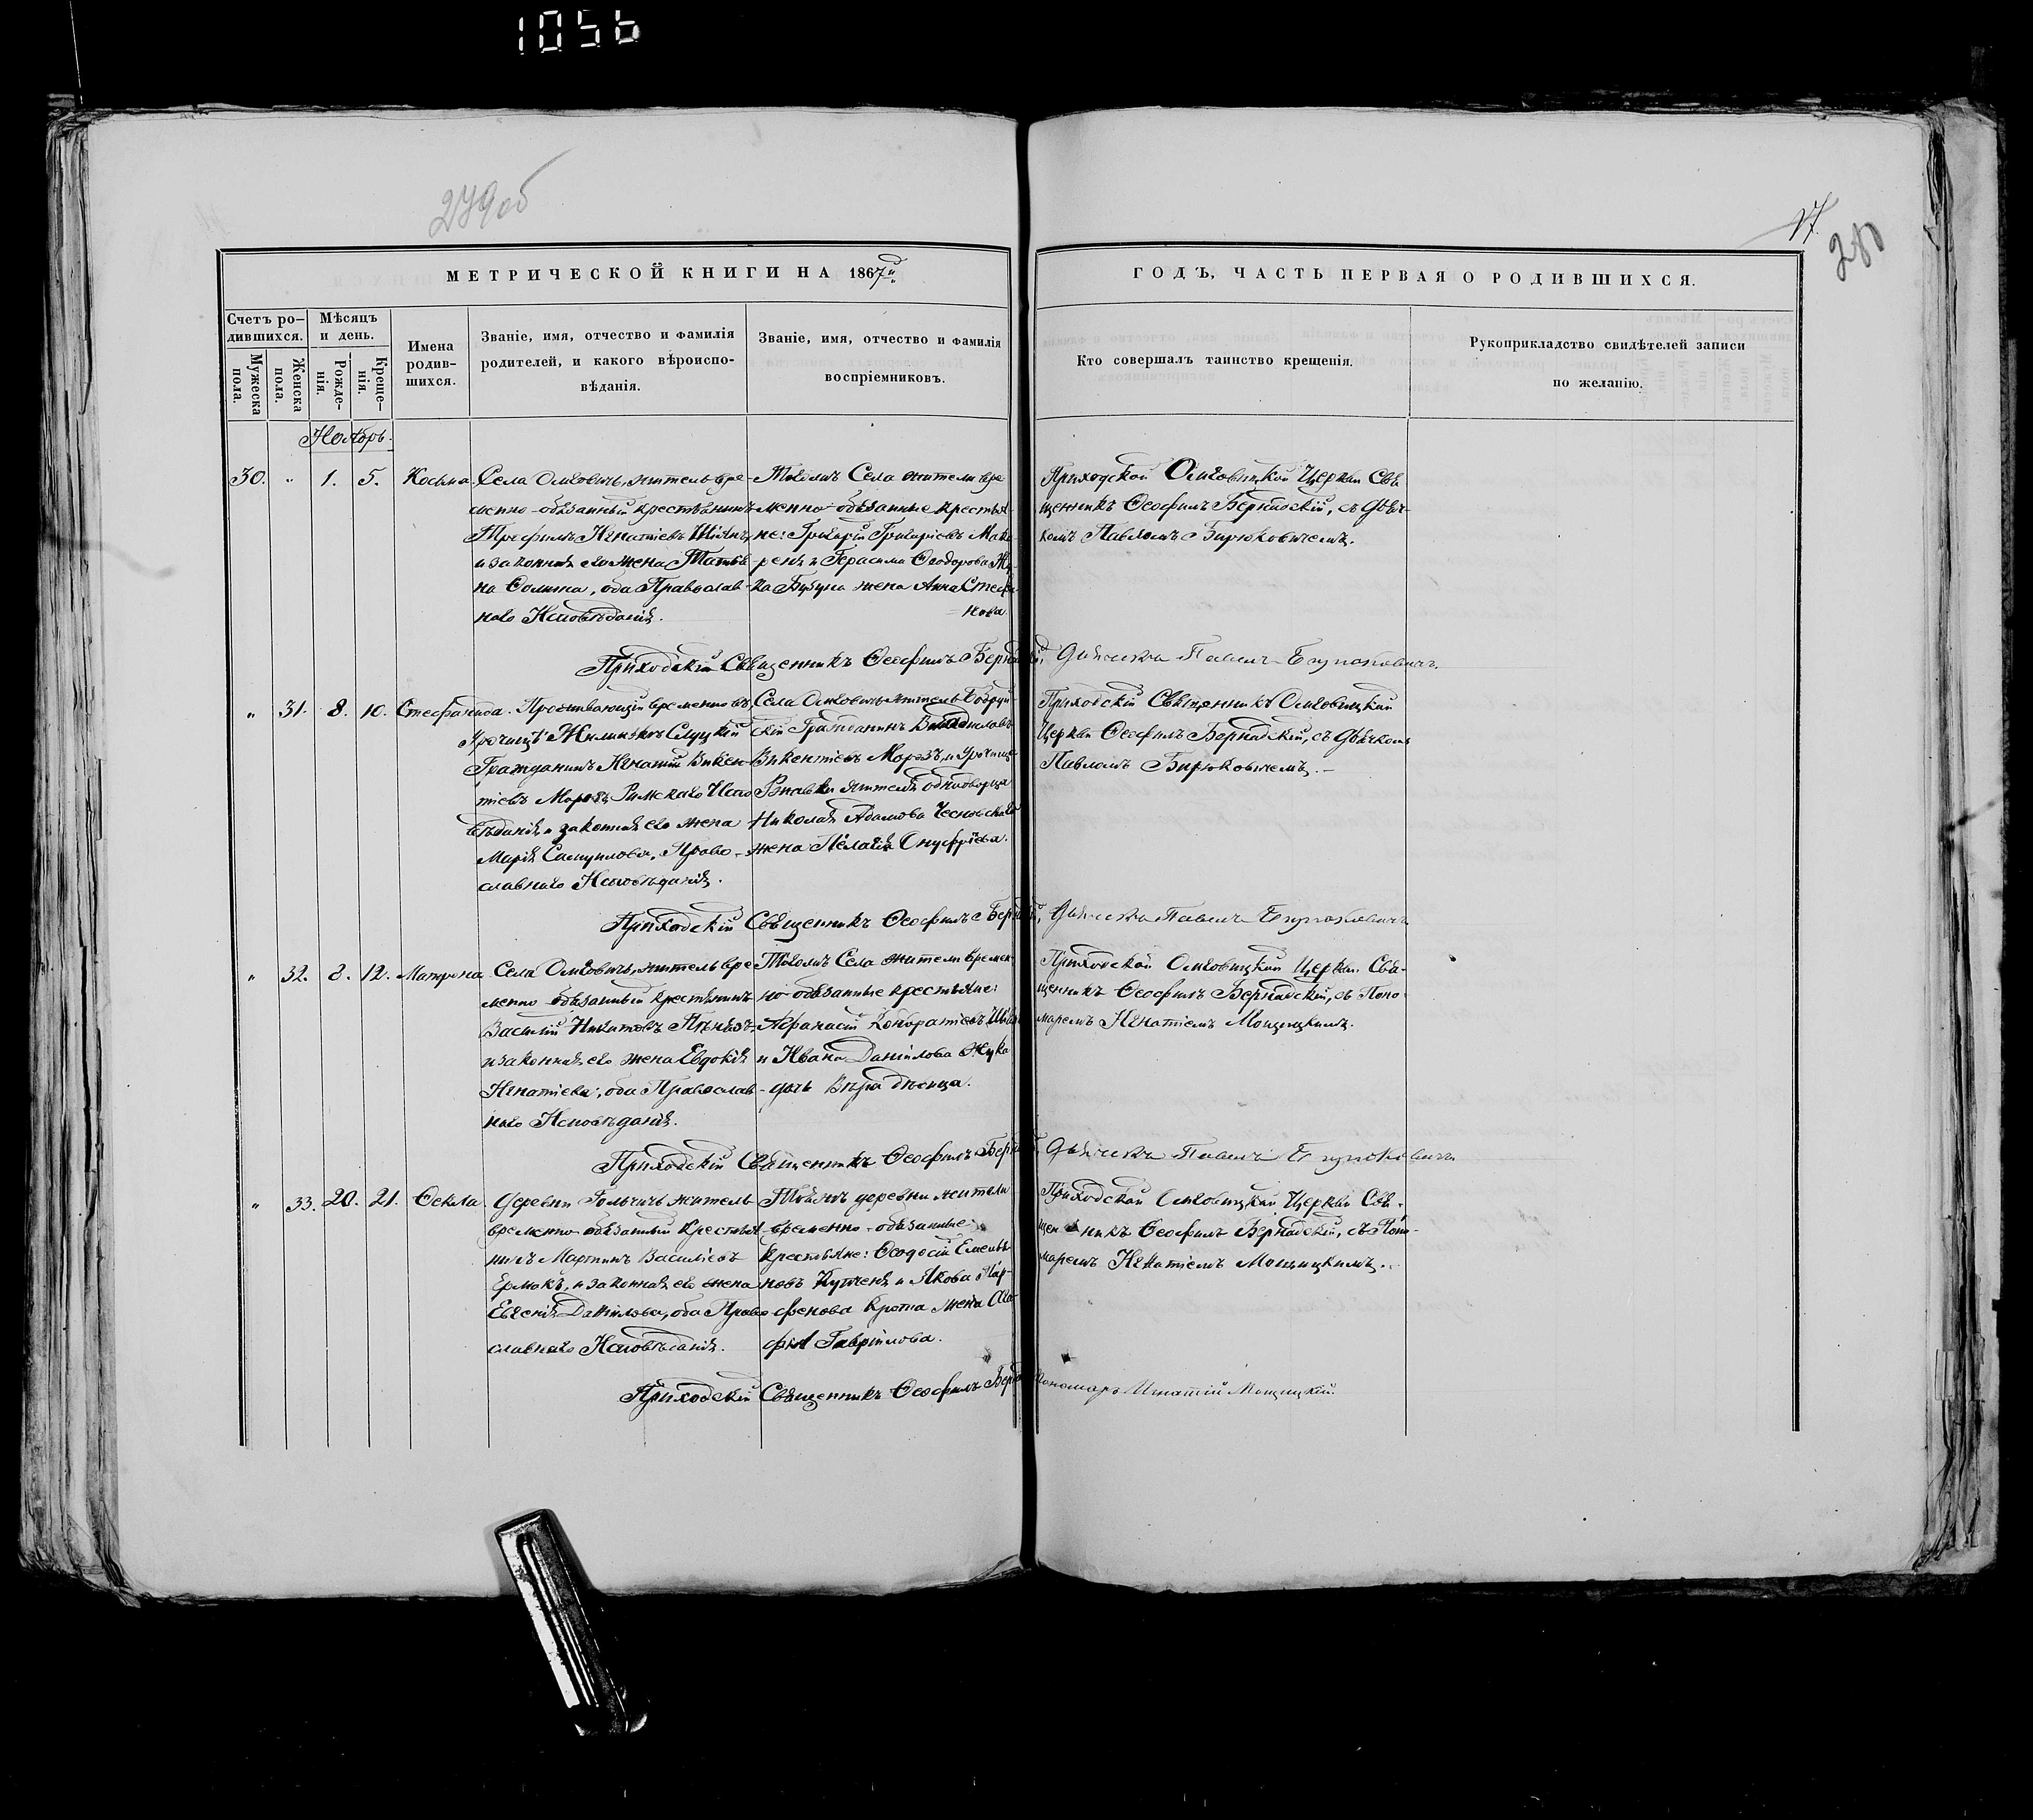 1056
279об
17.
280
МЕТРИЧЕСКОЙ КНИГИ НА 1867й
ГОДЪ, ЧАСТЬ ПЕРВАЯ О РОДИВШИХСЯ.
Счетъ ро-
дившихся.
Мужеска
пола.
Женска
пола.
Мѣсяцъ
и день.
Рожде-
нія.
Креще-
нія.
Имена
родив-
шихся.
Званіе, имя, отчество и фамилія
родителей, и какого вѣроиспо-
вѣданія.
Званіе, имя, отчество и фамилія
воспріемниковъ.
Кто совершалъ таинство крещенія.
Рукоприкладство свидѣтелей записи
по желанію.
Ноябрь.
30. „ 1. 5. Косьма.
Села Олиговичъ, житель вре-
менно-обязанный крестьянинъ
Трофимъ Игнатіевъ
и законная его жена Татья-
на Фомина, оба Православ-
наго Исповѣданія.
Тогожъ Села жители вре
менно-обязанные крестья-
не: Григорій Григоріевъ
и Герасима Ѳеодорова
жена Анна Стефа-
нова
Приходской Церкви Свя
щенникъ Ѳеофилъ Бернадскій, съ дьяч-
комъ Павломъ Бирюковичемъ.
Приходскій Священникъ Ѳеофилъ Бернадскій, Дьячекъ Павелъ Бирюковичъ.
„ 31. 8. 10. Стефанида.
Проживающій временно въ
Урочищѣ Слуцкій
Гражданинъ Игнатій Викен-
тіевъ Морозъ Римскаго Испо
вѣданія и законная его жена
Марія Самуилова, Право-
славнаго Исповѣданія.
Села житель Бобруй-
скій Гражданинъ Владиславъ
Викентіевъ Морозъ, и Урочища
жителя однодворца
Николая Адамова
жена Пелагія Онуфріева.
Приходскій Священникъ
Церкви Ѳеофилъ Бернадскій, съ дьячкомъ
Павломъ Бирюковичемъ.
Приходскій Священникъ Ѳеофилъ Бернадскій, Дьячекъ Павелъ Бирюковичъ
„ 32. 8. 12. Матрона
Села житель вре
менно обязанный крестьянинъ
Василій Никитовъ
и законная его жена Евдокія
Игнатіева, оба Православ-
наго Исповѣданія.
Тогожъ Села жители времен-
но-обязанные крестьяне:
Афанасій Кондратіевъ
и Ивана Даніилова Жука
дочь Вѣра дѣвица.
Приходской Церкви Свя-
щенникъ Ѳеофилъ Бернадскій, съ Поно-
маремъ Игнатіемъ Мощицкимъ.
Приходскій Священникъ Ѳеофилъ Бернадскій, Дьячекъ Павелъ Бирюковичъ
„ 33. 20. 21. Ѳекла.
Деревни житель
временно-обязанный Крестья-
нинъ Мартинъ Василіевъ
Ермакъ, и законная его жена
Евгенія Даніилова, оба Право
славнаго Исповѣданія.
Тойжъ деревни жители
временно-обязанные
крестьяне: Ѳеодосій Емелья-
новъ и Якова Пар-
фенова Крота жена Ага-
фія Гавріилова.
Приходской Церкви Свя-
щенникъ Ѳеофилъ Бернадскій, съ Поно-
маремъ Игнатіемъ Мощицкимъ.
Приходскій Священникъ Ѳеофилъ Пономарь Игнатій Мощицкій.